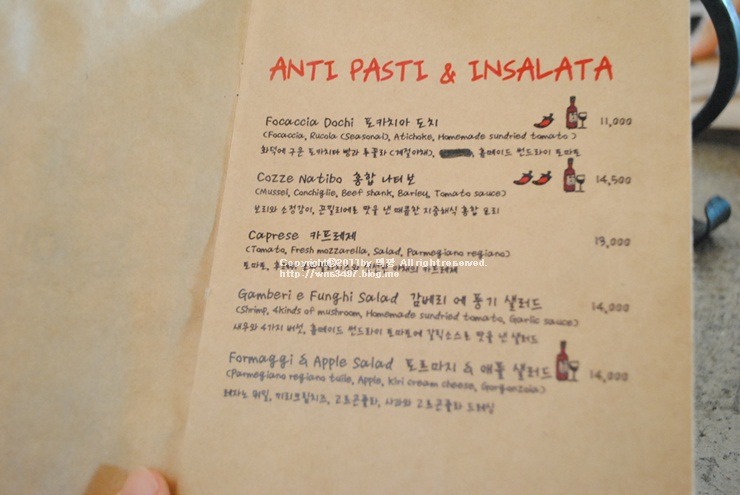 ANTI PASTI & INSALATA
Focaccia Dochi 포카치아 도치 11,000
(Focaccia, Rucola (Seasonal), Atichoke, Homemade sundried tomato)
화덕에 구운 포카치아 빵과 루꼴라 (계절야채), 홈메이드 썬드라이 토마토
Cozze Natibo 홍합 나티보 14,500
(Mussel, Conchiglie, Beef shank, Barley, Tomato sauce)
보리와 소정강이, 꼰낄리에로 맛을 낸 매콤한 지중해식 홍합 요리
Caprese 카프레제 13,000
(Tomato, Fresh mozzarella, Salad, Parmegiano regiano)
토마토, 야채의 카프레제
Copyrightⓒ2011by All rightreserved.
http://wns3497.blog.me
Gamberi e Funghi Salad 감베리 에 풍기 샐러드 14,000
(Shrimp, 4kinds of mushroom, Homemade sundried tomato, Garlic sauce)
새우와 4가지 버섯, 홈메이드 썬드라이 토마토에 갈릭소스로 맛을 낸 샐러드
Formaggi & Apple Salad 포르마지 & 애플 샐러드 14,000
(Parmegiano regiano tuile, Apple, Kiri cream cheese, Gorgonzola)
끼리크림치즈, 고르곤졸라, 사과와 고르곤졸라 드레싱